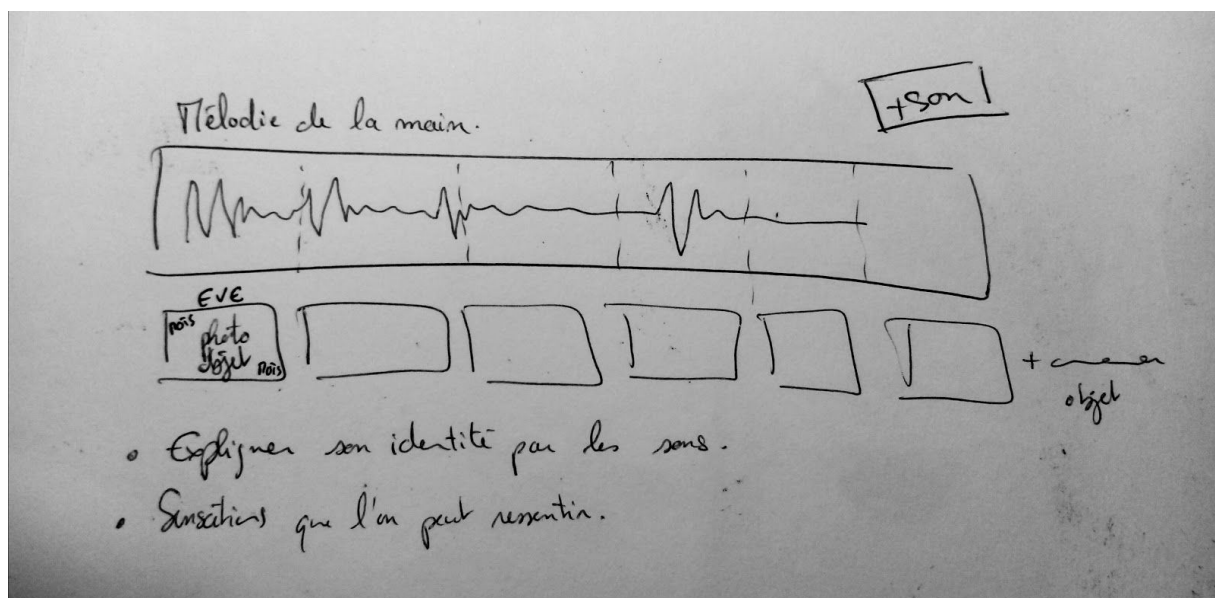 Mélodie de la main.
+son
EVE
nois
photo
objet
nois
+
objet
• Expliquer son identité par les sons.
• Sensations que l'on peut ressentir.